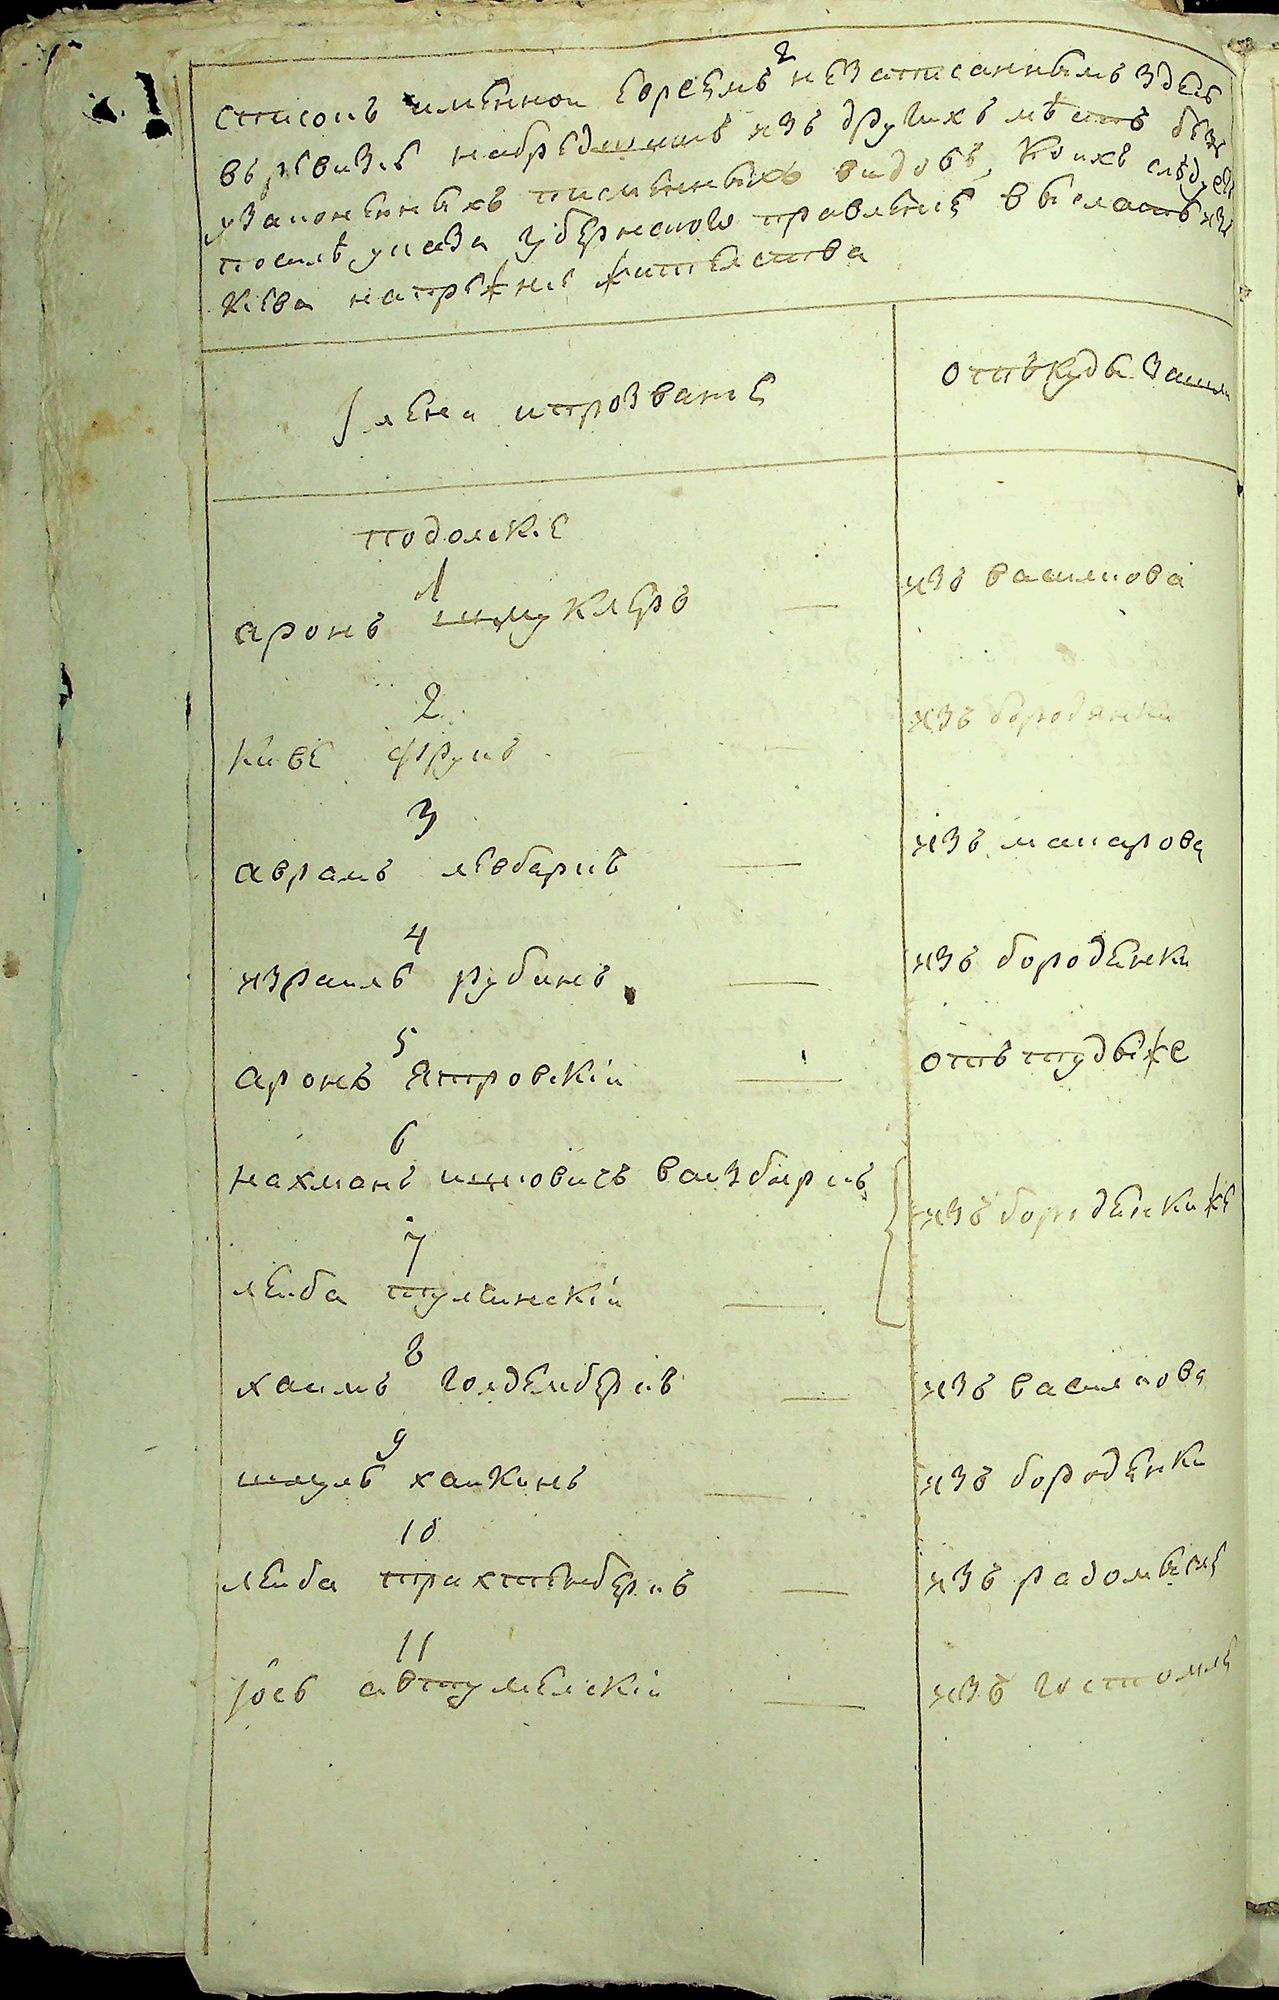 2
списокъ именнои евреемъ незаписаннымъ здесь
въ ревизiе набредшимъ изъ другихъ мѣстъ безъ
узаконенныхъ писменныхъ видовъ, коихъ следуетъ
посилѣ указа губернского правленiе выслать изъ
Кiева напрежнее жителства
Iмена ипрозванiе
отъкуды зашли
подолскiе
1
аронъ шмуклеръ — изъ василкова
2
киве фрукъ — изъ бородянки
3
аврамъ левбаркъ — изъ макарова
4
израиль рубинъ — изъ бородѣнки
5
аронъ Япровскiи — отъ тудыже
6
нахманъ ицковичъ ваизбаркъ
изъ бородѣнкиже
7
леиба тулчинскiи —
8
хаимъ голдемберкъ — изъ василкова
9
шмуль хаикинъ — изъ бородѣнки
10
леиба трахтенберкъ — изъ радомысле
11
Iось автумелскiи — изъ гостомле